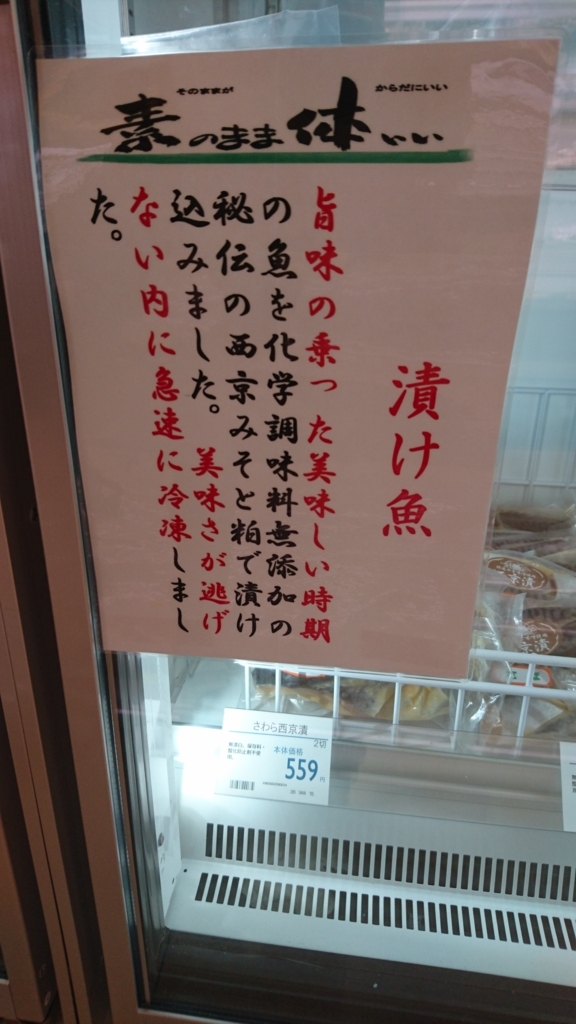 そのままが からだにいい
素のまま体いい
漬け魚
旨味の乗った美味しい時期
の魚を化学調味料無添加の
秘伝の西京みそと粕で漬け
込みました。美味さが逃げ
ない内に急速に冷凍しまし
た。
さわら西京漬
2切
本体価格
559円
京漬